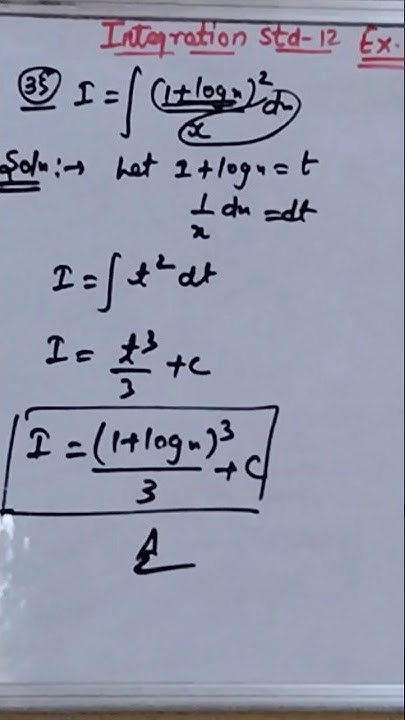 Integration Std-12 Ex.
(35) I = ∫ (1+log x)² / x dx
Soln:→ Let 1+log x = t
1/x dx = dt
I = ∫ t² dt
I = t³/3 + C
I = (1+log x)³/3 + C
A